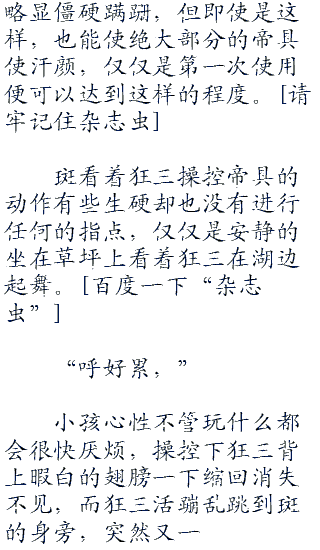 略显僵硬蹒跚，但即使是这
样，也能使绝大部分的帝具
使汗颜，仅仅是第一次使用
便可以达到这样的程度。[请
牢记住杂志虫]
斑看着狂三操控帝具的
动作有些生硬却也没有进行
任何的指点，仅仅是安静的
坐在草坪上看着狂三在湖边
起舞。[百度一下“杂志
虫”]
“呼好累，”
小孩心性不管玩什么都
会很快厌烦，操控下狂三背
上暇白的翅膀一下缩回消失
不见，而狂三活蹦乱跳到斑
的身旁，突然又一